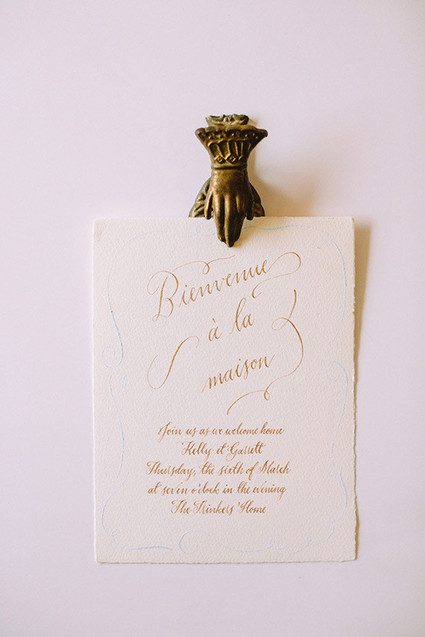 Bienvenue
à la
maison
Join us as we welcome home
Kelly et Garrett
Thursday, the sixth of March
at seven o'clock in the evening
The Trinkers' Home